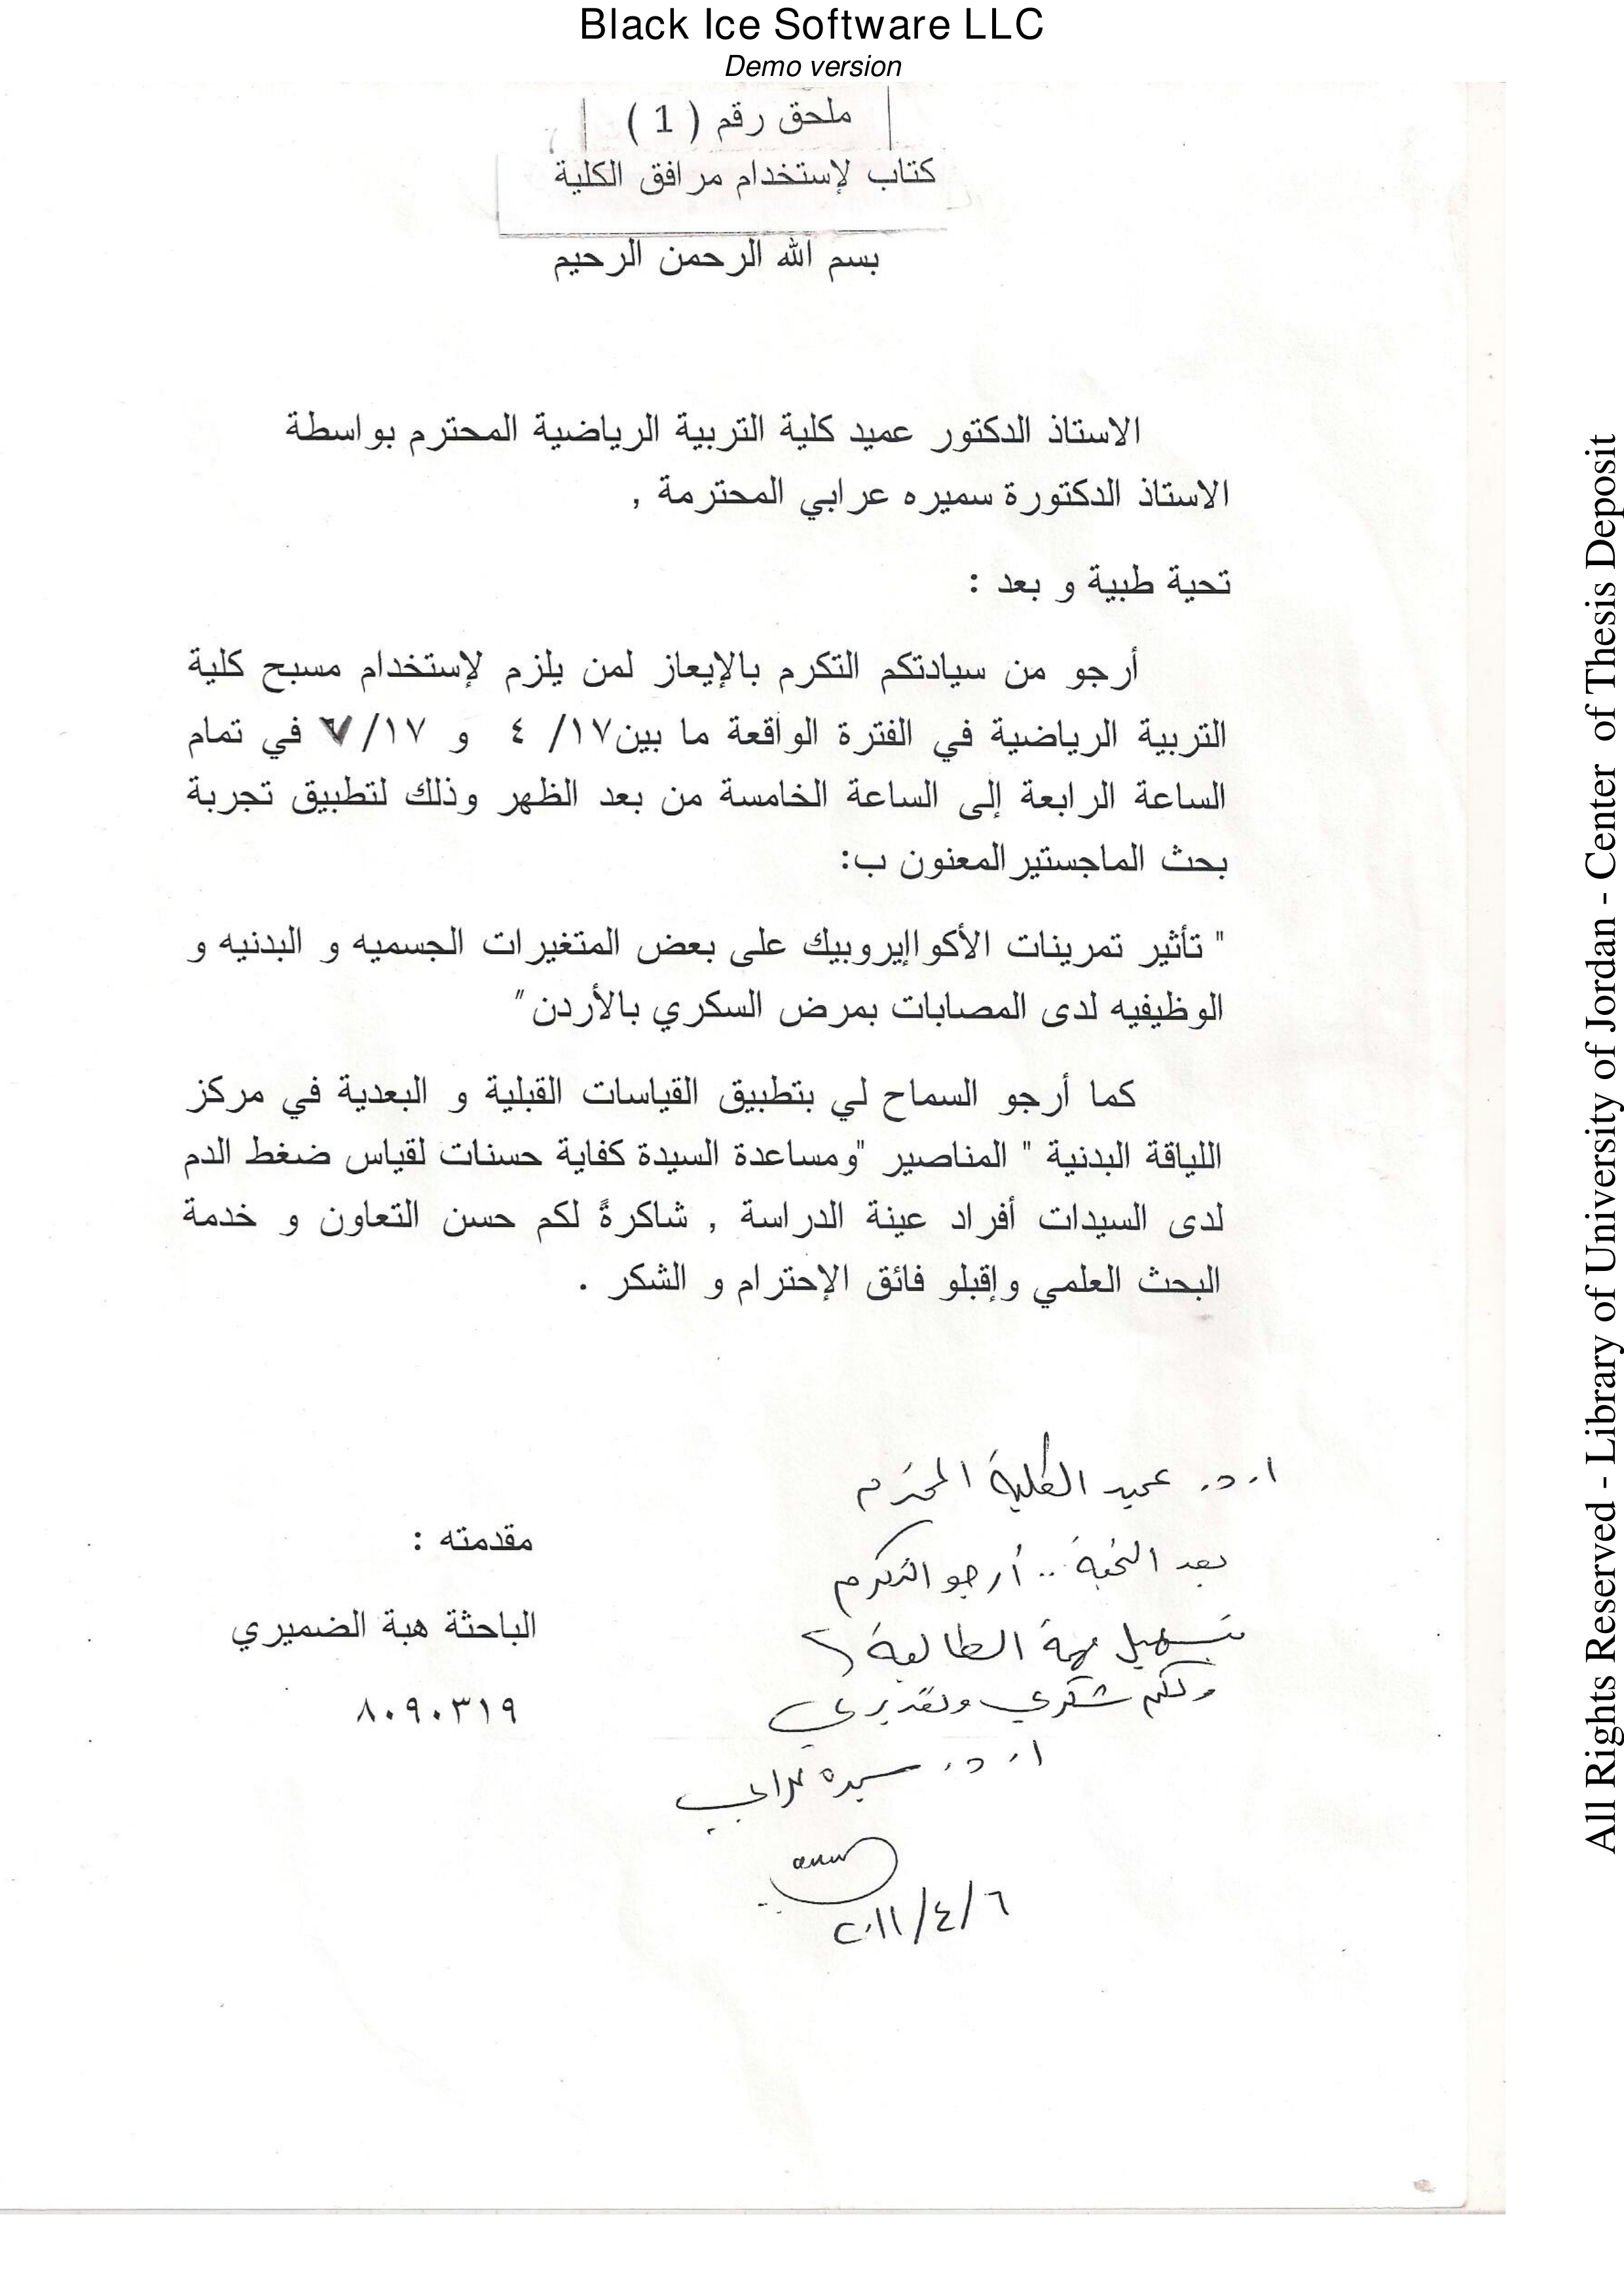 Black Ice Software LLC
Demo version
ملحق رقم ( 1 )
كتاب لإستخدام مرافق الكلية
بسم الله الرحمن الرحيم
الاستاذ الدكتور عميد كلية التربية الرياضية المحترم بواسطة
الاستاذ الدكتورة سميره عرابي المحترمة ,
تحية طيبة و بعد :
أرجو من سيادتكم التكرم بالإيعاز لمن يلزم لإستخدام مسبح كلية
التربية الرياضية في الفترة الواقعة ما بين١٧/ ٤ و ١٧/ في تمام
الساعة الرابعة إلى الساعة الخامسة من بعد الظهر وذلك لتطبيق تجربة
بحث الماجستير المعنون ب:
" تأثير تمرينات الأكواإيروبيك على بعض المتغيرات الجسميه و البدنيه و
الوظيفيه لدى المصابات بمرض السكري بالأردن"
كما أرجو السماح لي بتطبيق القياسات القبلية و البعدية في مركز
اللياقة البدنية " المناصير "ومساعدة السيدة كفاية حسنات لقياس ضغط الدم
لدى السيدات أفراد عينة الدراسة , شاكرةً لكم حسن التعاون و خدمة
البحث العلمي وإقبلو فائق الإحترام و الشكر .
ا.د. عميد الكلية المحترم
بعد التحية .. أرجو التكرم
بتسهيل مهمة الطالبة
ولكم شكري وتقديري
ا.د. سميره عرابي
٢٠١١/٤/٦
مقدمته :
الباحثة هبة الضميري
٨٠٩٠٣١٩
All Rights Reserved - Library of University of Jordan - Center of Thesis Deposit